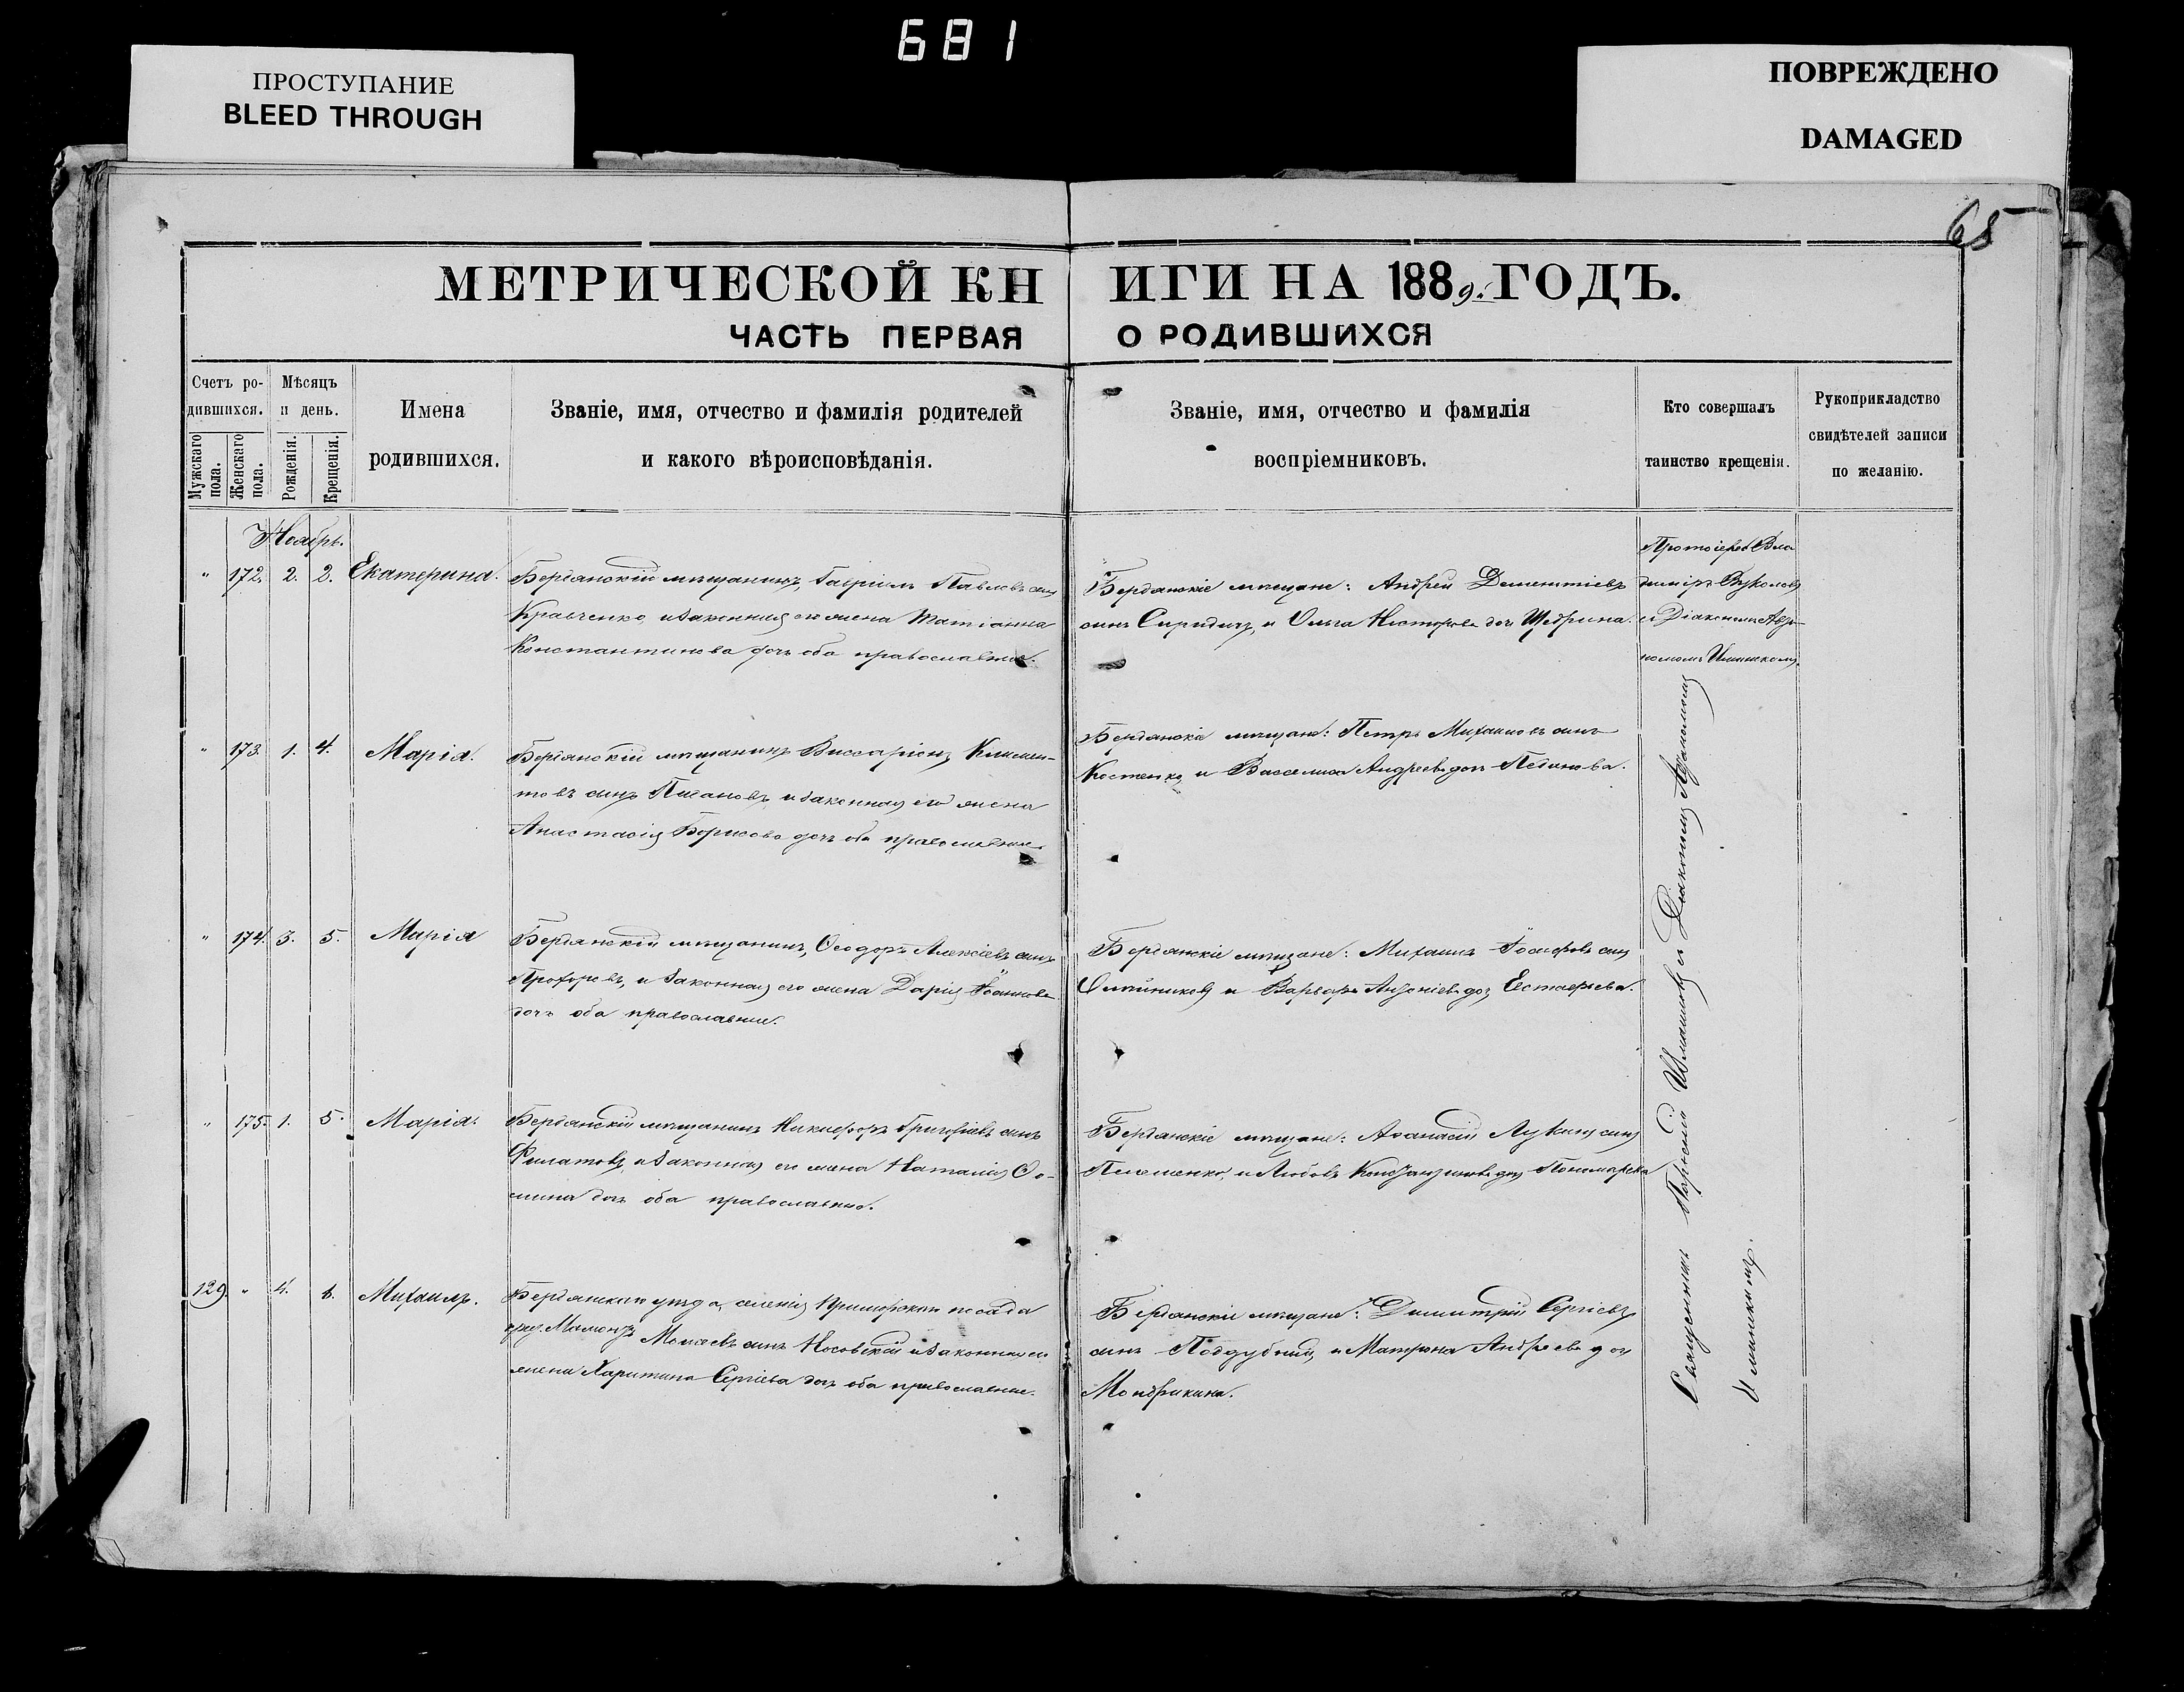 681
ПРОСТУПАНИЕ
BLEED THROUGH
ПОВРЕЖДЕНО
DAMAGED
65
МЕТРИЧЕСКОЙ КНИГИ НА 1889 г. ГОДЪ.
ЧАСТЬ ПЕРВАЯ О РОДИВШИХСЯ
Счетъ ро-
дившихся.
Мужскаго пола.
Женскаго пола.
Мѣсяцъ
и день.
Рожденія.
Крещенія.
Имена
родившихся.
Званіе, имя, отчество и фамилія родителей
и какого вѣроисповѣданія.
Званіе, имя, отчество и фамилія
воспріемниковъ.
Кто совершалъ
таинство крещенія.
Рукоприкладство
свидѣтелей записи
по желанію.
Ноябрь.
" 172. 2. 2. Екатерина.
Бердянскій мѣщанинъ, Гавріилъ Павловъ сынъ
Кравченко, и законная его жена Татіанна
Константинова дочь оба православные.
Бердянскіе мѣщане: Андрей Дементіевъ
сынъ Спиридичъ, и Ольга Несторова дочь Щедрина.
Протоіерей Вла
димиръ
и Діакономъ
" 173. 1. 4. Марія.
Бердянскій мѣщанинъ Виссаріонъ Климен-
товъ сынъ и законная его жена
Анастасія Борисова дочь оба православные.
Бердянскіе мѣщане: Петръ Михаиловъ сынъ
Костенко, и Васселиса Андреева дочь
" 174. 3. 5. Марія
Бердянскій мѣщанинъ, Ѳеодоръ Алексіевъ сынъ
Прохоровъ, и законная его жена Дарія Іоаннова
дочь оба православные.
Бердянскіе мѣщане: Михаилъ Іосифовъ сынъ
Олейниковъ и Варвара дочь Евстафьева.
" 175. 1. 5. Марія.
Бердянскій мѣщанинъ Никифоръ Григоріевъ сынъ
Филатовъ, и законная его жена Наталія Ѳо-
мина дочь оба православные.
Бердянскіе мѣщане: Аѳанасій Лукинъ сынъ
и Любовь Константинова дочь
129. " 4. Михаилъ.
Бердянскаго уѣзда, селенія посада
Моисеевъ сынъ Носовскій и законная его
жена Харитина Сергіева дочь оба православные.
Бердянскіе мѣщане: Димитрій Сергіевъ
сынъ Поддубный, и Матрона Андреева дочь
Мондрикина.
Священникъ и Діакономъ